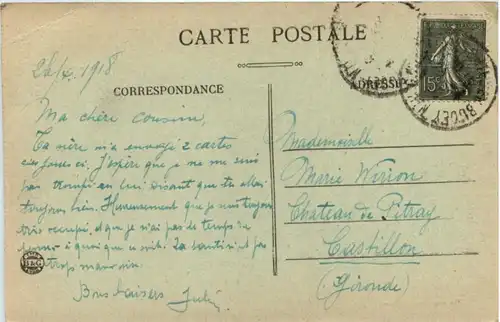 CARTE POSTALE
CORRESPONDANCE
ADRESSE
15c
1918
Ma chère cousine,
Ta mère m'a envoyé 2 cartes
ces jours ci. J'espère que je ne me suis
pas trompé en lui disant que tu allais
toujours bien. Heureusement que je suis toujours
très occupé, et que je n'ai pas de temps de
à quoi que ce soit. La santé n'est pas
trop mauvaise.
Bons baisers
Mademoiselle
Marie Werion
Château de Pitray
Castillon
(Gironde)
B&G